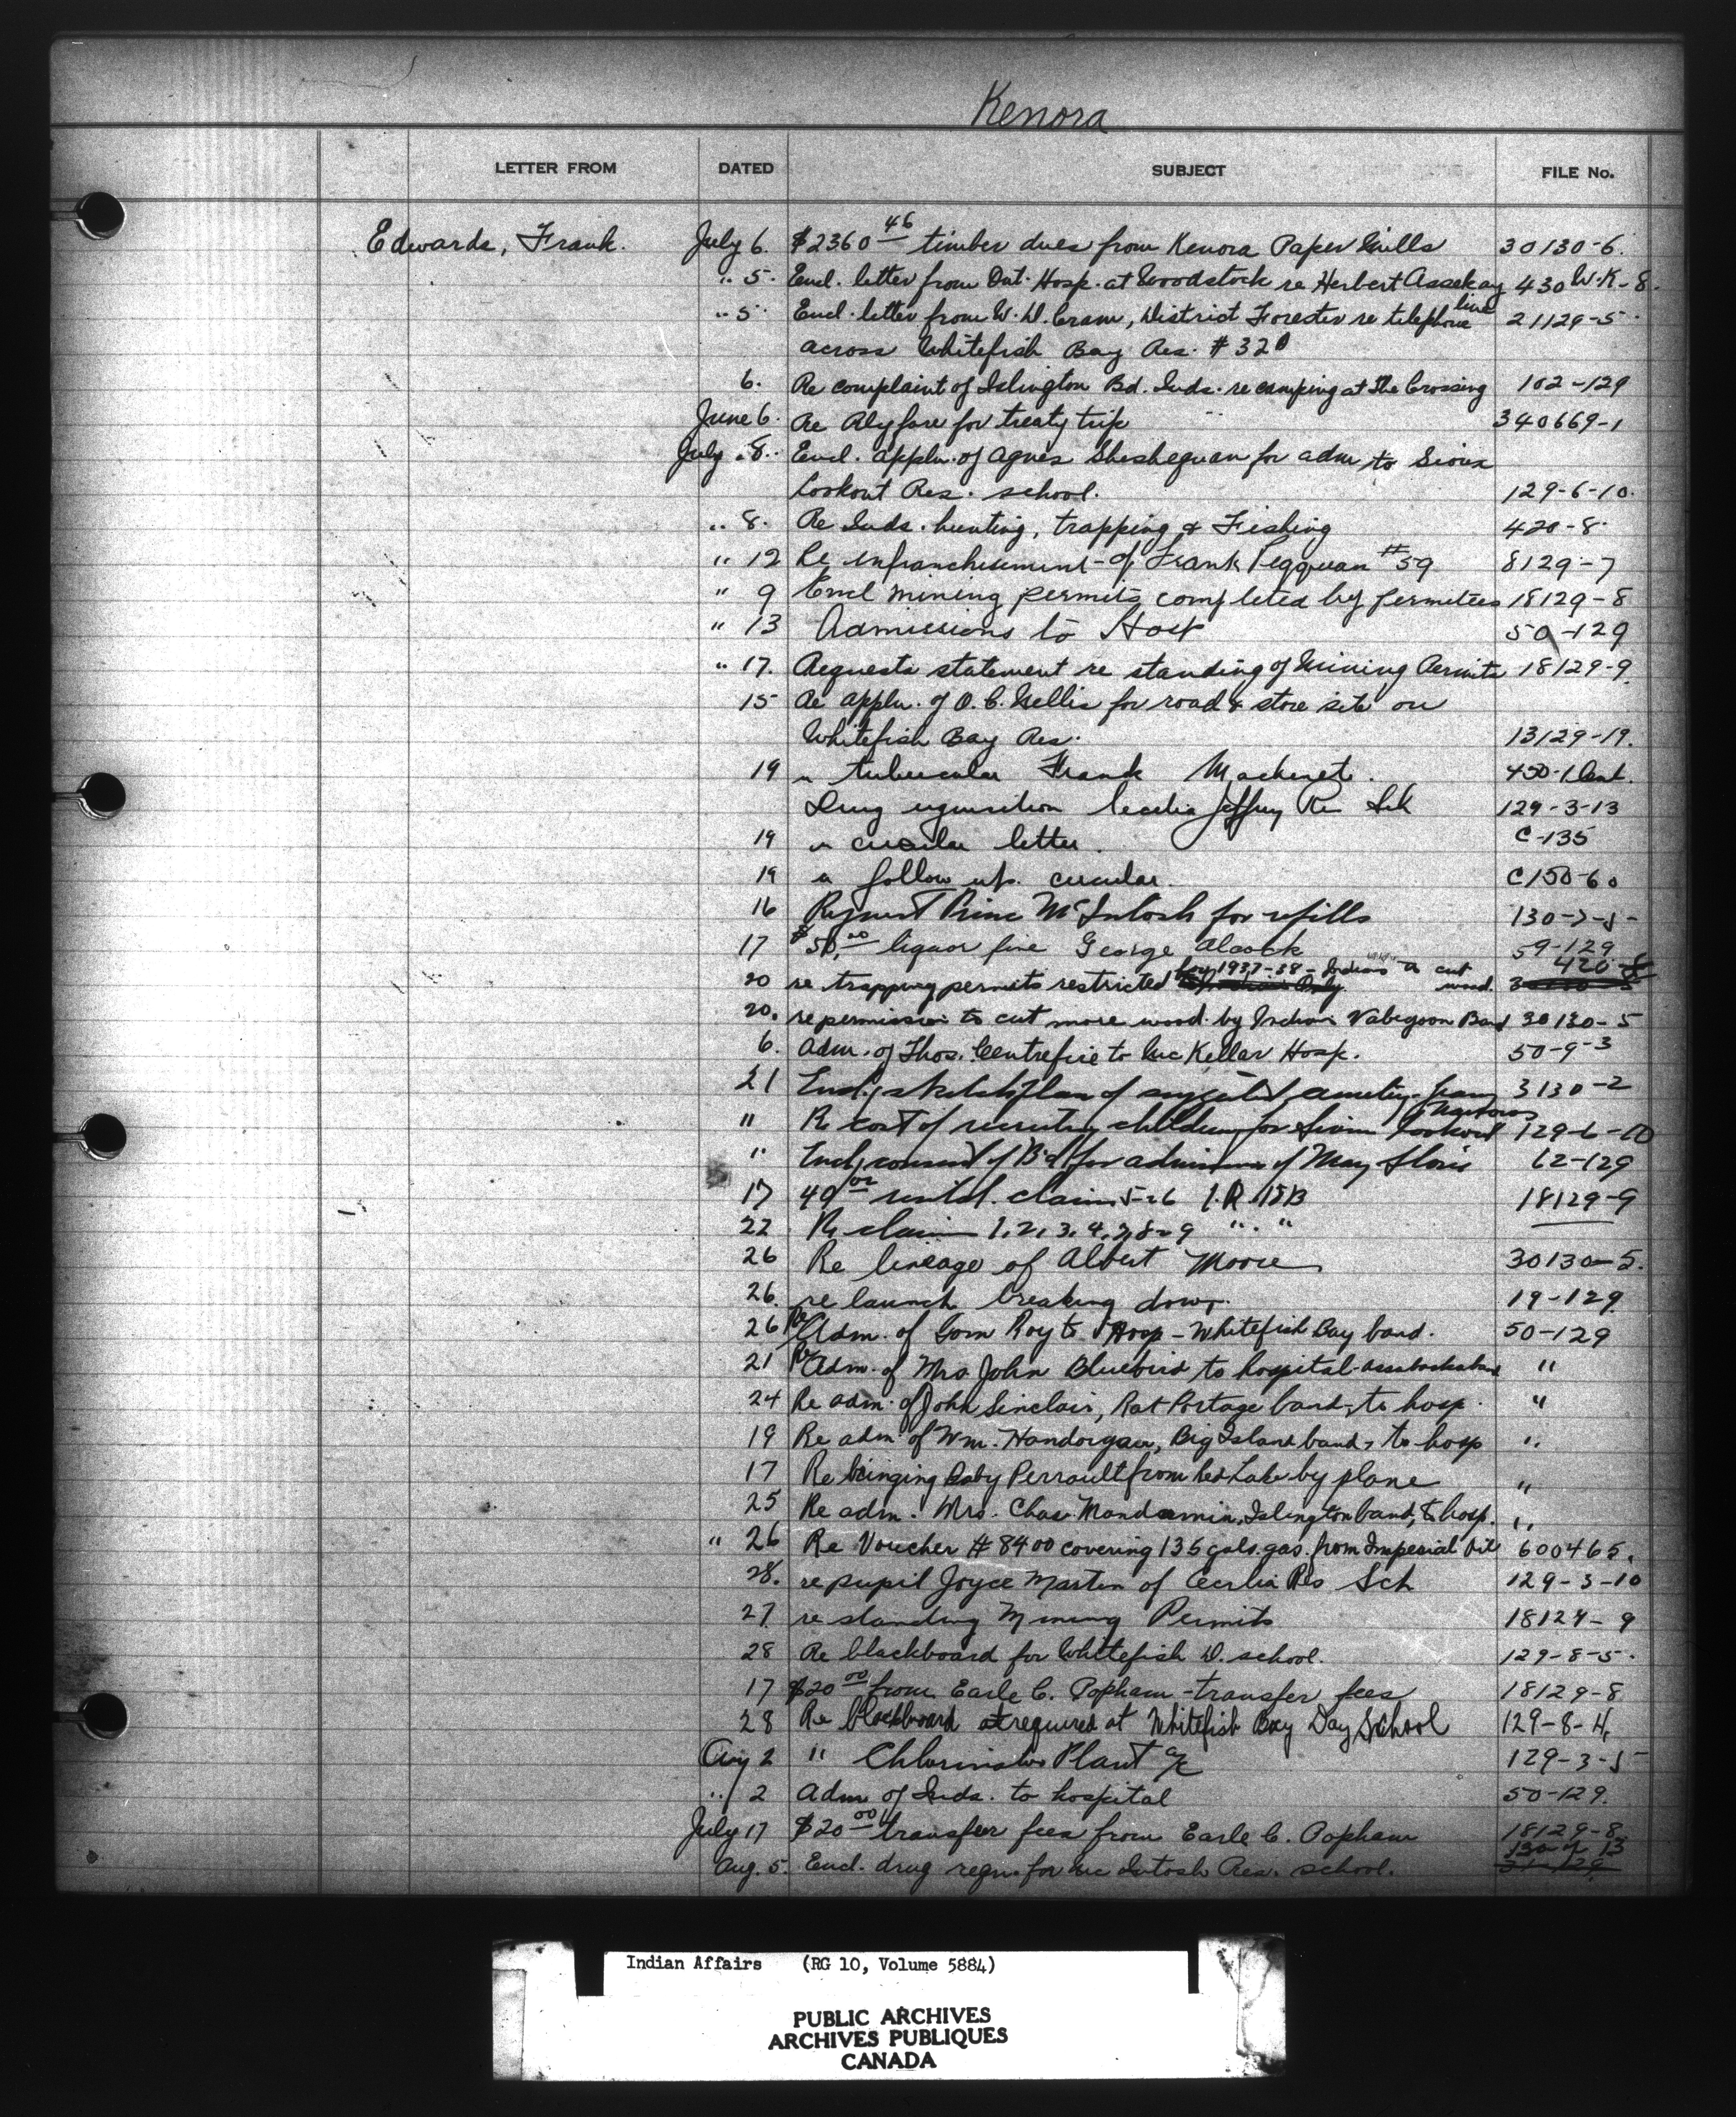 Kenora
LETTER FROM DATED SUBJECT FILE No.
Edwards, Frank. July 6. $2360 46 timber dues from Kenora Paper Mills 30130-6.
" 5. Encl. letter from Ont. Hosp. at Woodstock re Herbert Assekay 430 W.K-8.
" 5 Encl. letter from W. D. Cram, District Forester re telephone line 21129-5
across Whitefish Bay Res. # 32
6. Re complaint of Islington Bd. Inds. re camping at The Crossing 102-129
June 6. Re Rly fare for treaty trip 340669-1
July 8. Encl. appln. of Agnes Sheshequan for adm to Sioux
Lookout Res. school. 129-6-10.
" 8. Re Inds. hunting, trapping & Fishing 420-8.
" 12 Re enfranchisement of Frank Pegquan #59 8129-7
" 9 Encl mining permits completed by permitees 18129-8
" 13 Admissions to Hosp 50-129
" 17. Requests statement re standing of Mining Permits 18129-9.
15 Re appln. of O. C. Nellis for road & store site on
Whitefish Bay Res. 13129-19.
19 " tubercular Frank 450-1
Drug requisition Cecilia Jeffrey Re Sch 129-3-13
19 " circular letter. C-135
19 " follow up. circular. C150-60
16 Request Princ McIntosh for refills 130-7-5-
17 $50.00 liquor fine George Alcock 59-129
20 re trapping permits restricted for 1937-38 - Indians to cut wood. 420-8
20. re permission to cut more wood by Indians Wabegoon Band 30130-5
6. Adm. of Thos. Centrefire to McKellar Hosp. 50-9-3
21 Encl. sketch plan of cemetery 3130-2
" Re cost of recruiting children for Sioux Lookout 129-6-10
" Encl. consent of Bd for admission of May 62-129
17 40 00 rental. claims 5-26 I.R. 15B 18129-9
22 Re claim 1, 2, 3, 4, 7, 8-9 " . "
26 Re lineage of Albert Moore 30130-5.
26. re launch breaking down. 19-129.
26 Re Adm. of Gom Roy to Hosp - Whitefish Bay band. 50-129
21 Re Adm. of Mrs. John Bluebird to hospital "
24 Re adm. of John Sinclair, Rat Portage band, to hosp. "
19 Re adm. of Wm. Handorgan, Big Island band, to hosp "
17 Re bringing Baby Perrault from Red Lake by plane "
25 Re adm. Mrs. Chas. Mandamin, Islington band, to hosp. "
" 26 Re Voucher # 8400 covering 135 gals. gas. from Imperial Oil 600465.
28. re pupil Joyce Martin of Cecilia Res Sch 129-3-10
27. re standing Mining Permits 18129-9
28 Re blackboard for Whitefish D. school. 129-8-5.
17 $20 00 from Earle C. Popham - transfer fees 18129-8
28 Re blackboard required at Whitefish Bay Day School 129-8-4,
Aug 2 " Chlorinator Plant a/c 129-3-5
" 2 Adm of Inds. to hospital 50-129.
July 17 $20 00 transfer fees from Earle C. Popham 18129-8.
Aug. 5. Encl. drug reqn. for McIntosh Res. school. 130-7-13
Indian Affairs (RG 10, Volume 5884)
PUBLIC ARCHIVES
ARCHIVES PUBLIQUES
CANADA